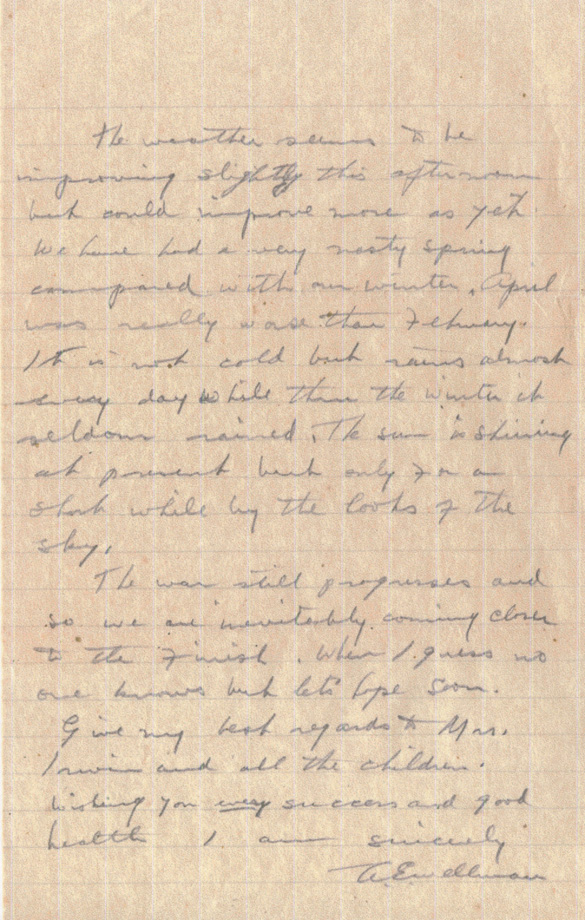 The weather seems to be
improving slightly this afternoon
but could improve more as yet.
We have had a very nasty spring
compared with our winter. April
was really worse than February.
It is not cold but rains almost
every day while thru the winter it
seldom rained. The sun is shining
at present but only for a
short while by the looks of the
sky.
The war still progresses and
so we are inevitably coming closer
to the finish. When I guess no
one knows but let's hope soon.
Give my best regards to Mrs.
Irwin and all the children.
Wishing you every success and good
health I am sincerely